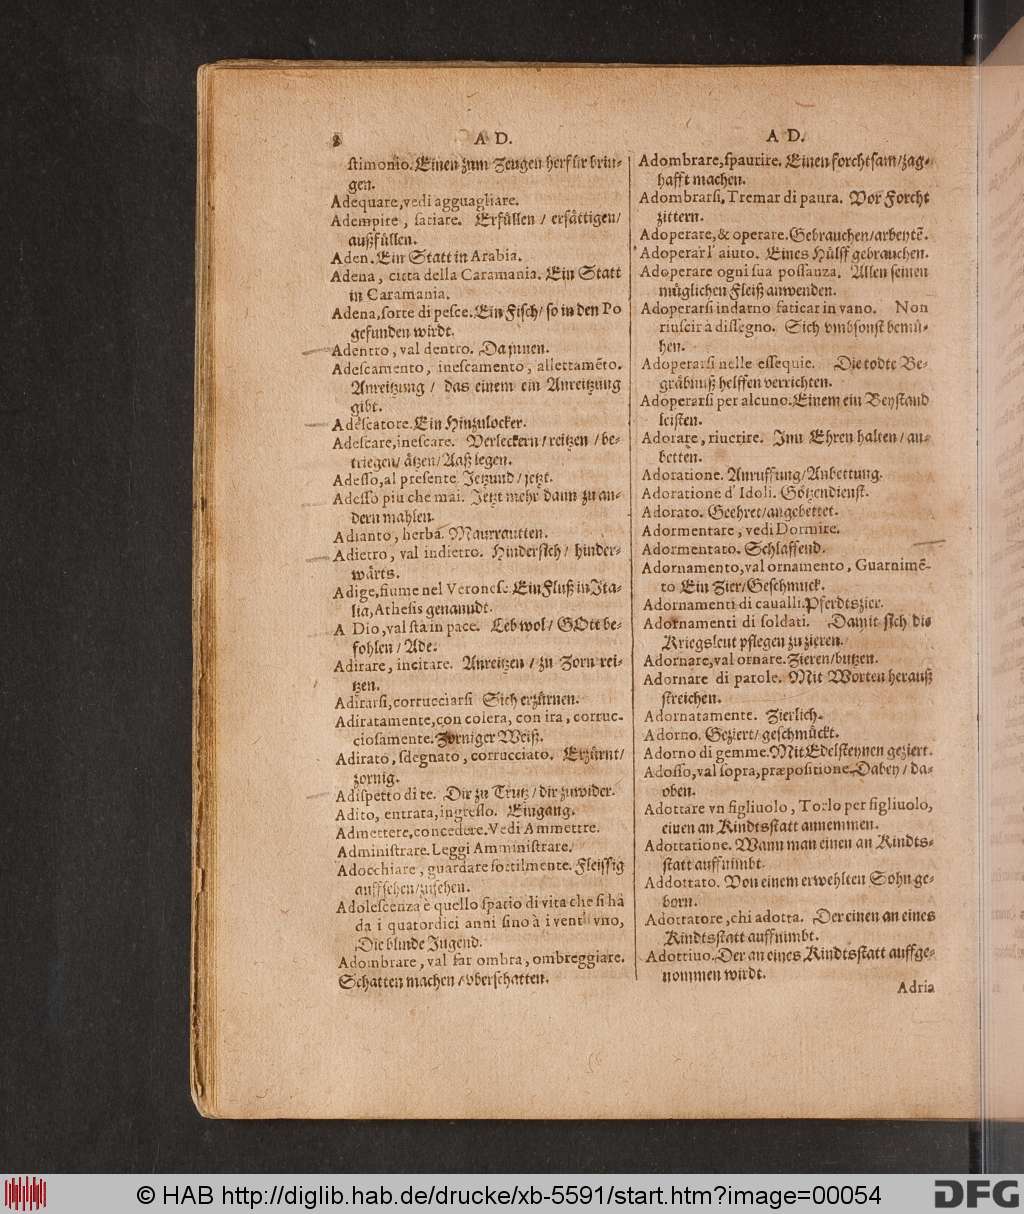 8 A D.
stimonio. Einen zum Zeugen herfür brin-
gen.
Adequare, vedi agguagliare.
Adempire, satiare. Erfüllen / ersättigen/
außfüllen.
Aden. Ein Statt in Arabia.
Adena, citta della Caramania. Ein Statt
in Caramania.
Adena, sorte di pesce. Ein Fisch/ so in den Po
gefunden wirdt.
Adentro, val dentro. Da jnnen.
Adescamento, inescamento, allettamẽto.
Anreitzung / das einem ein Anreitzung
gibt.
Adescatore. Ein Hinzulocker.
Adescare, inescare. Verleckern / reitzen / be-
triegen/ ätzen/ Aaß legen.
Adesso, al presente. Jetzund / jetzt.
Adesso piu che mai. Jetzt mehr dann zu an-
dern mahlen.
Adianto, herba. Maurrautten.
Adietro, val indietro. Hindersich / hinder-
wärts.
Adige, fiume nel Veronese. Ein Fluß in Ita-
lia, Athesis genanndt.
A Dio, val sta in pace. Leb wol / GOtt be-
fohlen / Ade.
Adirare, incitare. Anreitzen / zu Zorn rei-
tzen.
Adirarsi, corrucciarsi Sich erzürnen.
Adiratamente, con colera, con ira, corruc-
ciosamente. Zorniger Weiß.
Adirato, sdegnato, corrucciato. Erzürnt/
zornig.
Adispetto di te. Dir zu Trutz / dir zuwider.
Adito, entrata, ingresso. Eingang.
Admettere, concedere. Vedi Ammettre.
Administrare. Leggi Amministrare.
Adocchiare, guardare sottilmente. Fleissig
auffsehen/ zusehen.
Adolescenza è quello spatio di vita che si hà
da i quatordici anni sino à i vent' vno,
Die blinde Jugend.
Adombrare, val far ombra, ombreggiare.
Schatten machen / vberschatten.
A D.
Adombrare, spaurire. Einen forchtsam/zag-
hafft machen.
Adombrarsi, Tremar di paura. Vor Forcht
zittern.
Adoperare, & operare. Gebrauchen/arbeytẽ.
Adoperar l' aiuto. Eines Hülff gebrauchen.
Adoperare ogni sua possanza. Allen seinen
müglichen Fleiß anwenden.
Adoperarsi indarno faticar in vano. Non
riuscir à dissegno. Sich vmbsonst bemü-
hen.
Adoperarsi nelle essequie. Die todte Be-
gräbnuß helffen verrichten.
Adoperarsi per alcuno. Einem ein Beystand
leisten.
Adorare, riuerire. Inn Ehren halten / an-
betten.
Adoratione. Anruffung/Anbettung.
Adoratione d' Idoli. Götzendienst.
Adorato. Geehret/angebettet.
Adormentare, vedi Dormire.
Adormentato. Schlaffend.
Adornamento, val ornamento, Guarnimẽ-
to Ein Zier/Geschmuck.
Adornamenti di caualli. Pferdtszier.
Adornamenti di soldati. Damit sich die
Kriegsleut pflegen zu zieren.
Adornare, val ornare. Zieren/butzen.
Adornare di parole. Mit Worten herauß
streichen.
Adornatamente. Zierlich.
Adorno. Geziert/ geschmückt.
Adorno di gemme. Mit Edelsteynen geziert.
Adosso, val sopra, præpositione. Dabey / da-
oben.
Adottare vn figliuolo, Torlo per figliuolo,
einen an Kindtsstatt annemmen.
Adottatione. Wann man einen an Kindts-
statt auffnimbt.
Addottato. Von einem erwehlten Sohn ge-
born.
Adottatore, chi adotta. Der einen an eines
Kindtsstatt auffnimbt.
Adottiuo. Der an eines Kindtsstatt auffge-
nommen wirdt.
Adria
© HAB http://diglib.hab.de/drucke/xb-5591/start.htm?image=00054
DFG